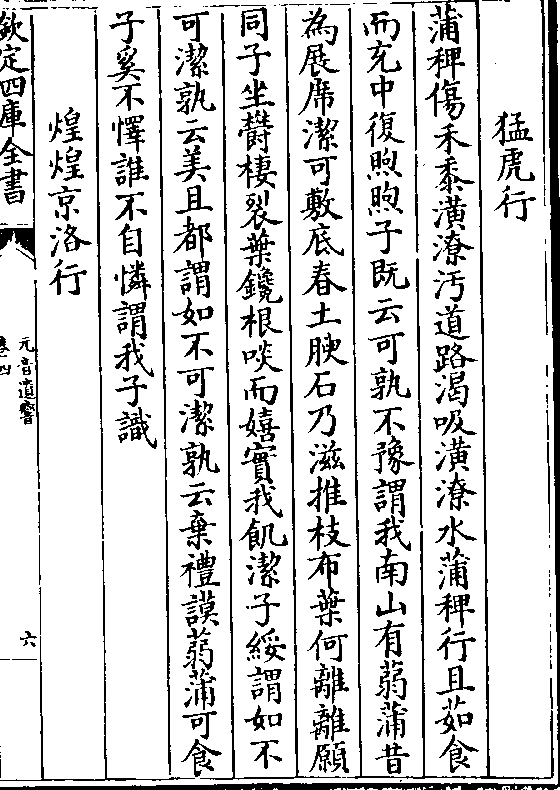 猛虎行
蒲稗傷禾黍潢潦汚道路渴吸潢潦水蒲稗行且茹食
而充中復煦煦子既云可孰不豫謂我南山有蒻蒲昔
為展席潔可敷底春土腴石乃滋推枝布葉何離離願
同子坐欝棲裂葉鑱根啖而嬉實我飢潔子綏謂如不
可潔孰云美且都謂如不可潔孰云棄禮謨蒻蒲可食
子奚不懌誰不自憐謂我子識
煌煌京洛行
欽定四庫全書
元音遺響
卷四
六